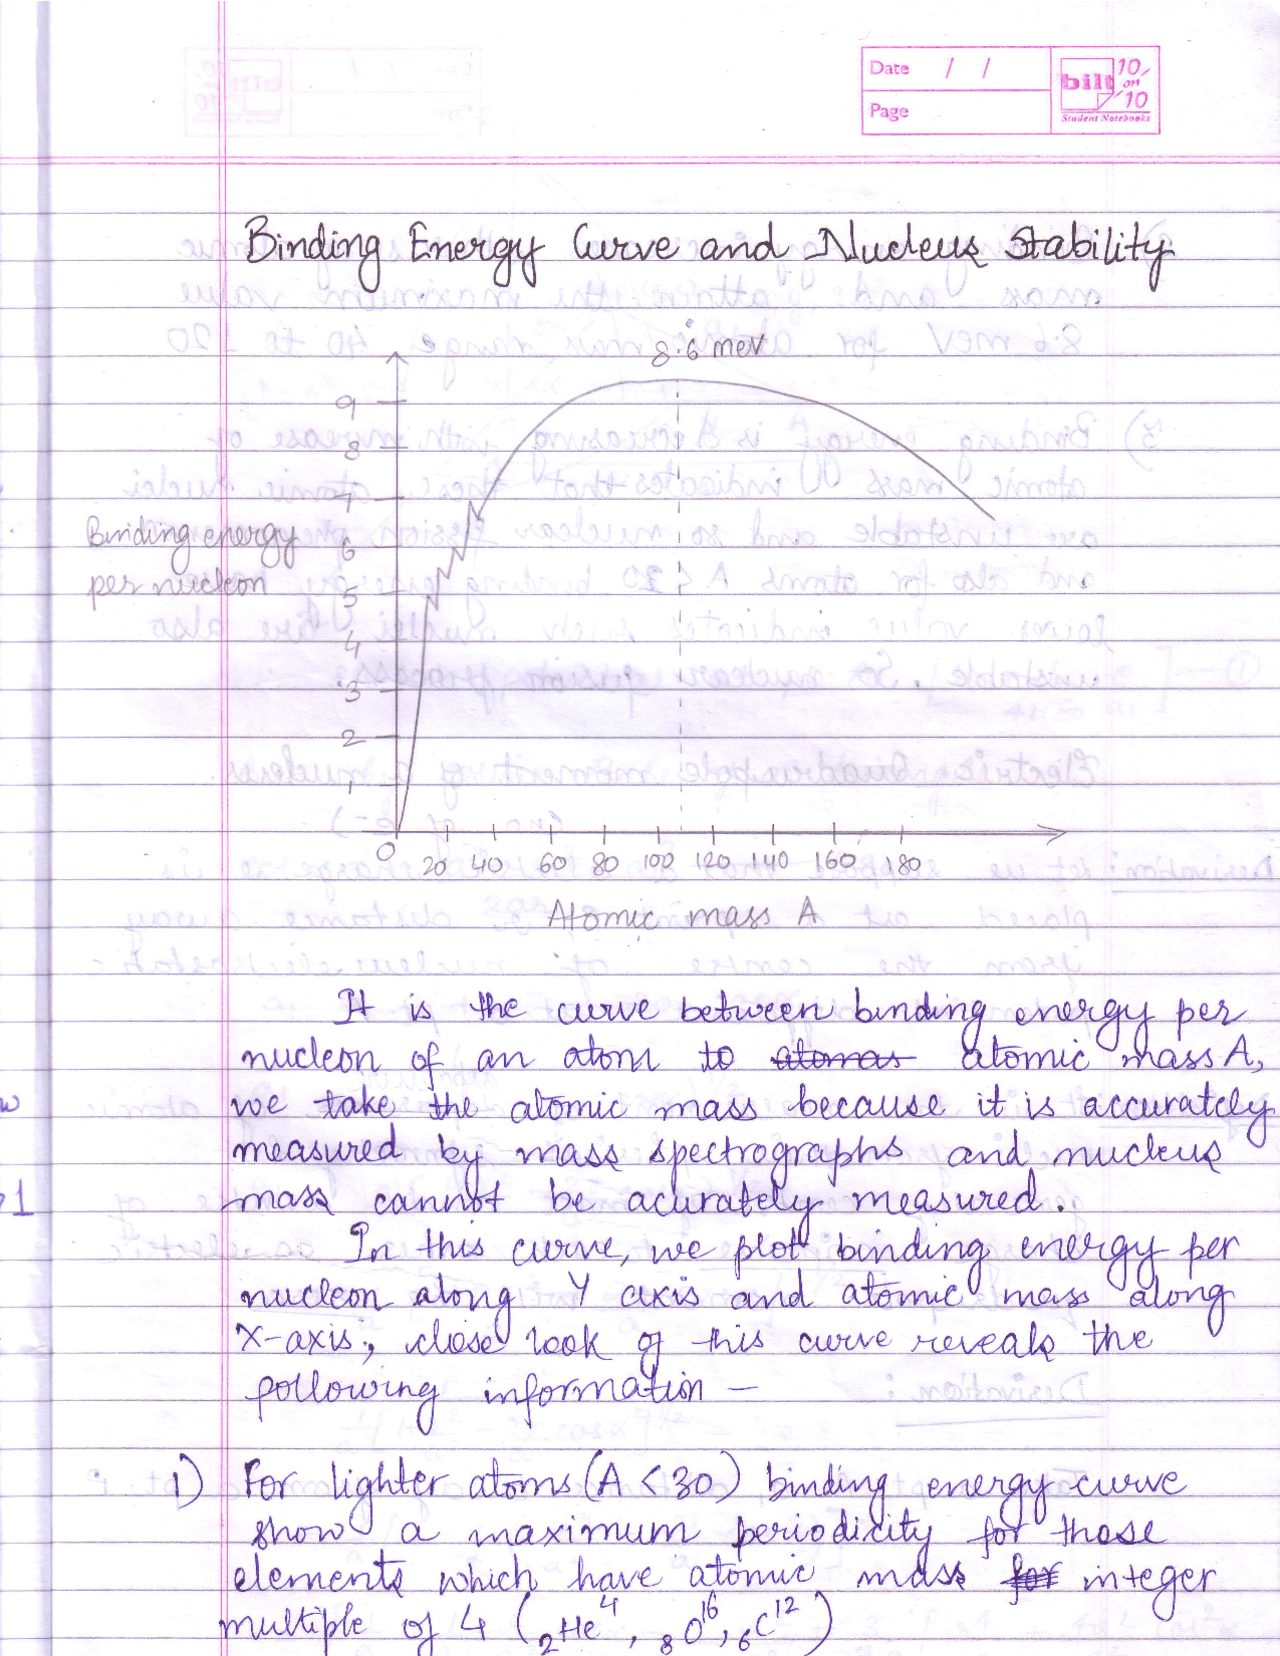 Date / /
Page
bilt 10 on 10
Student Notebooks
Binding Energy Curve and Nucleus Stability
8.6 mev
9
8
7
Binding energy
6
per nucleon
5
4
3
2
1
0 20 40 60 80 100 120 140 160 180
Atomic mass A
It is the curve between binding energy per
nucleon of an atom to atomas atomic mass A,
we take the atomic mass because it is accurately
measured by mass spectrographs and nucleus
mass cannot be acurately measured.
In this curve, we plot binding energy per
nucleon along Y axis and atomic mass along
X-axis; close look of this curve reveals the
following information –
1) For lighter atoms (A < 30) binding energy curve
show a maximum periodicity for those
elements which have atomic mass for integer
multiple of 4 (₂He⁴, ₈O¹⁶, ₆C¹²)